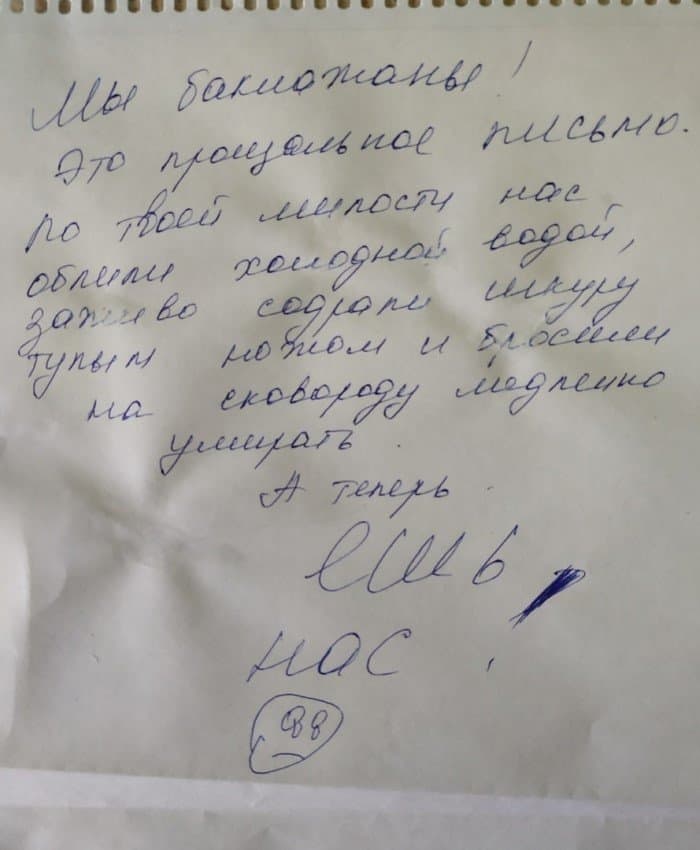 Мы баклажаны!
Это прощальное письмо.
По твоей милости нас
облили холодной водой,
заживо содрали шкуру
тупым ножом и бросили
на сковороду медленно
умирать.
А теперь
ешь
нас!